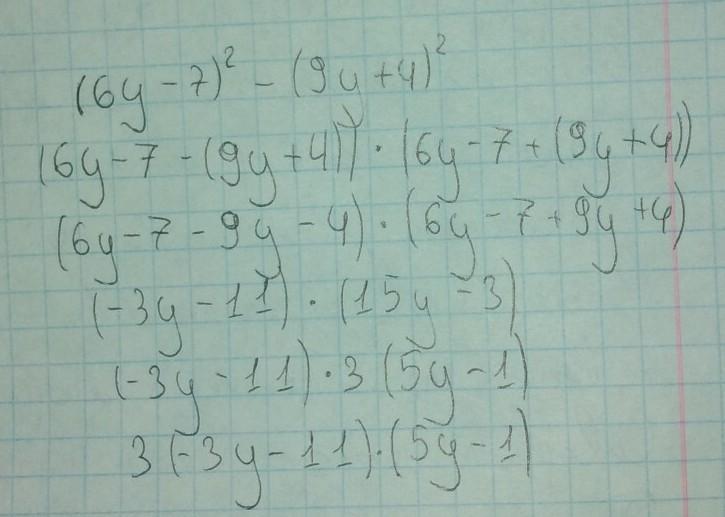 (6y - 7)² - (9y + 4)²
(6y - 7 - (9y + 4)) · (6y - 7 + (9y + 4))
(6y - 7 - 9y - 4) · (6y - 7 + 9y + 4)
(-3y - 11) · (15y - 3)
(-3y - 11) · 3 (5y - 1)
3 (-3y - 11) · (5y - 1)